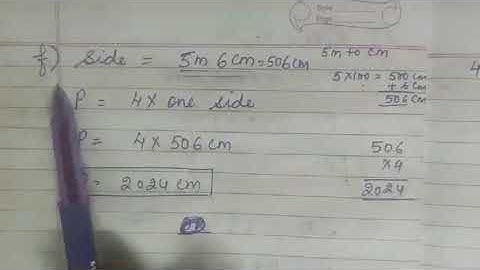 f) Side = 5m 6cm = 506cm
P = 4 × one side
P = 4 × 506 cm
= 2024 cm
5m to cm
5×100 = 500 cm
+ 6 cm
506 cm
506
×4
2024
4